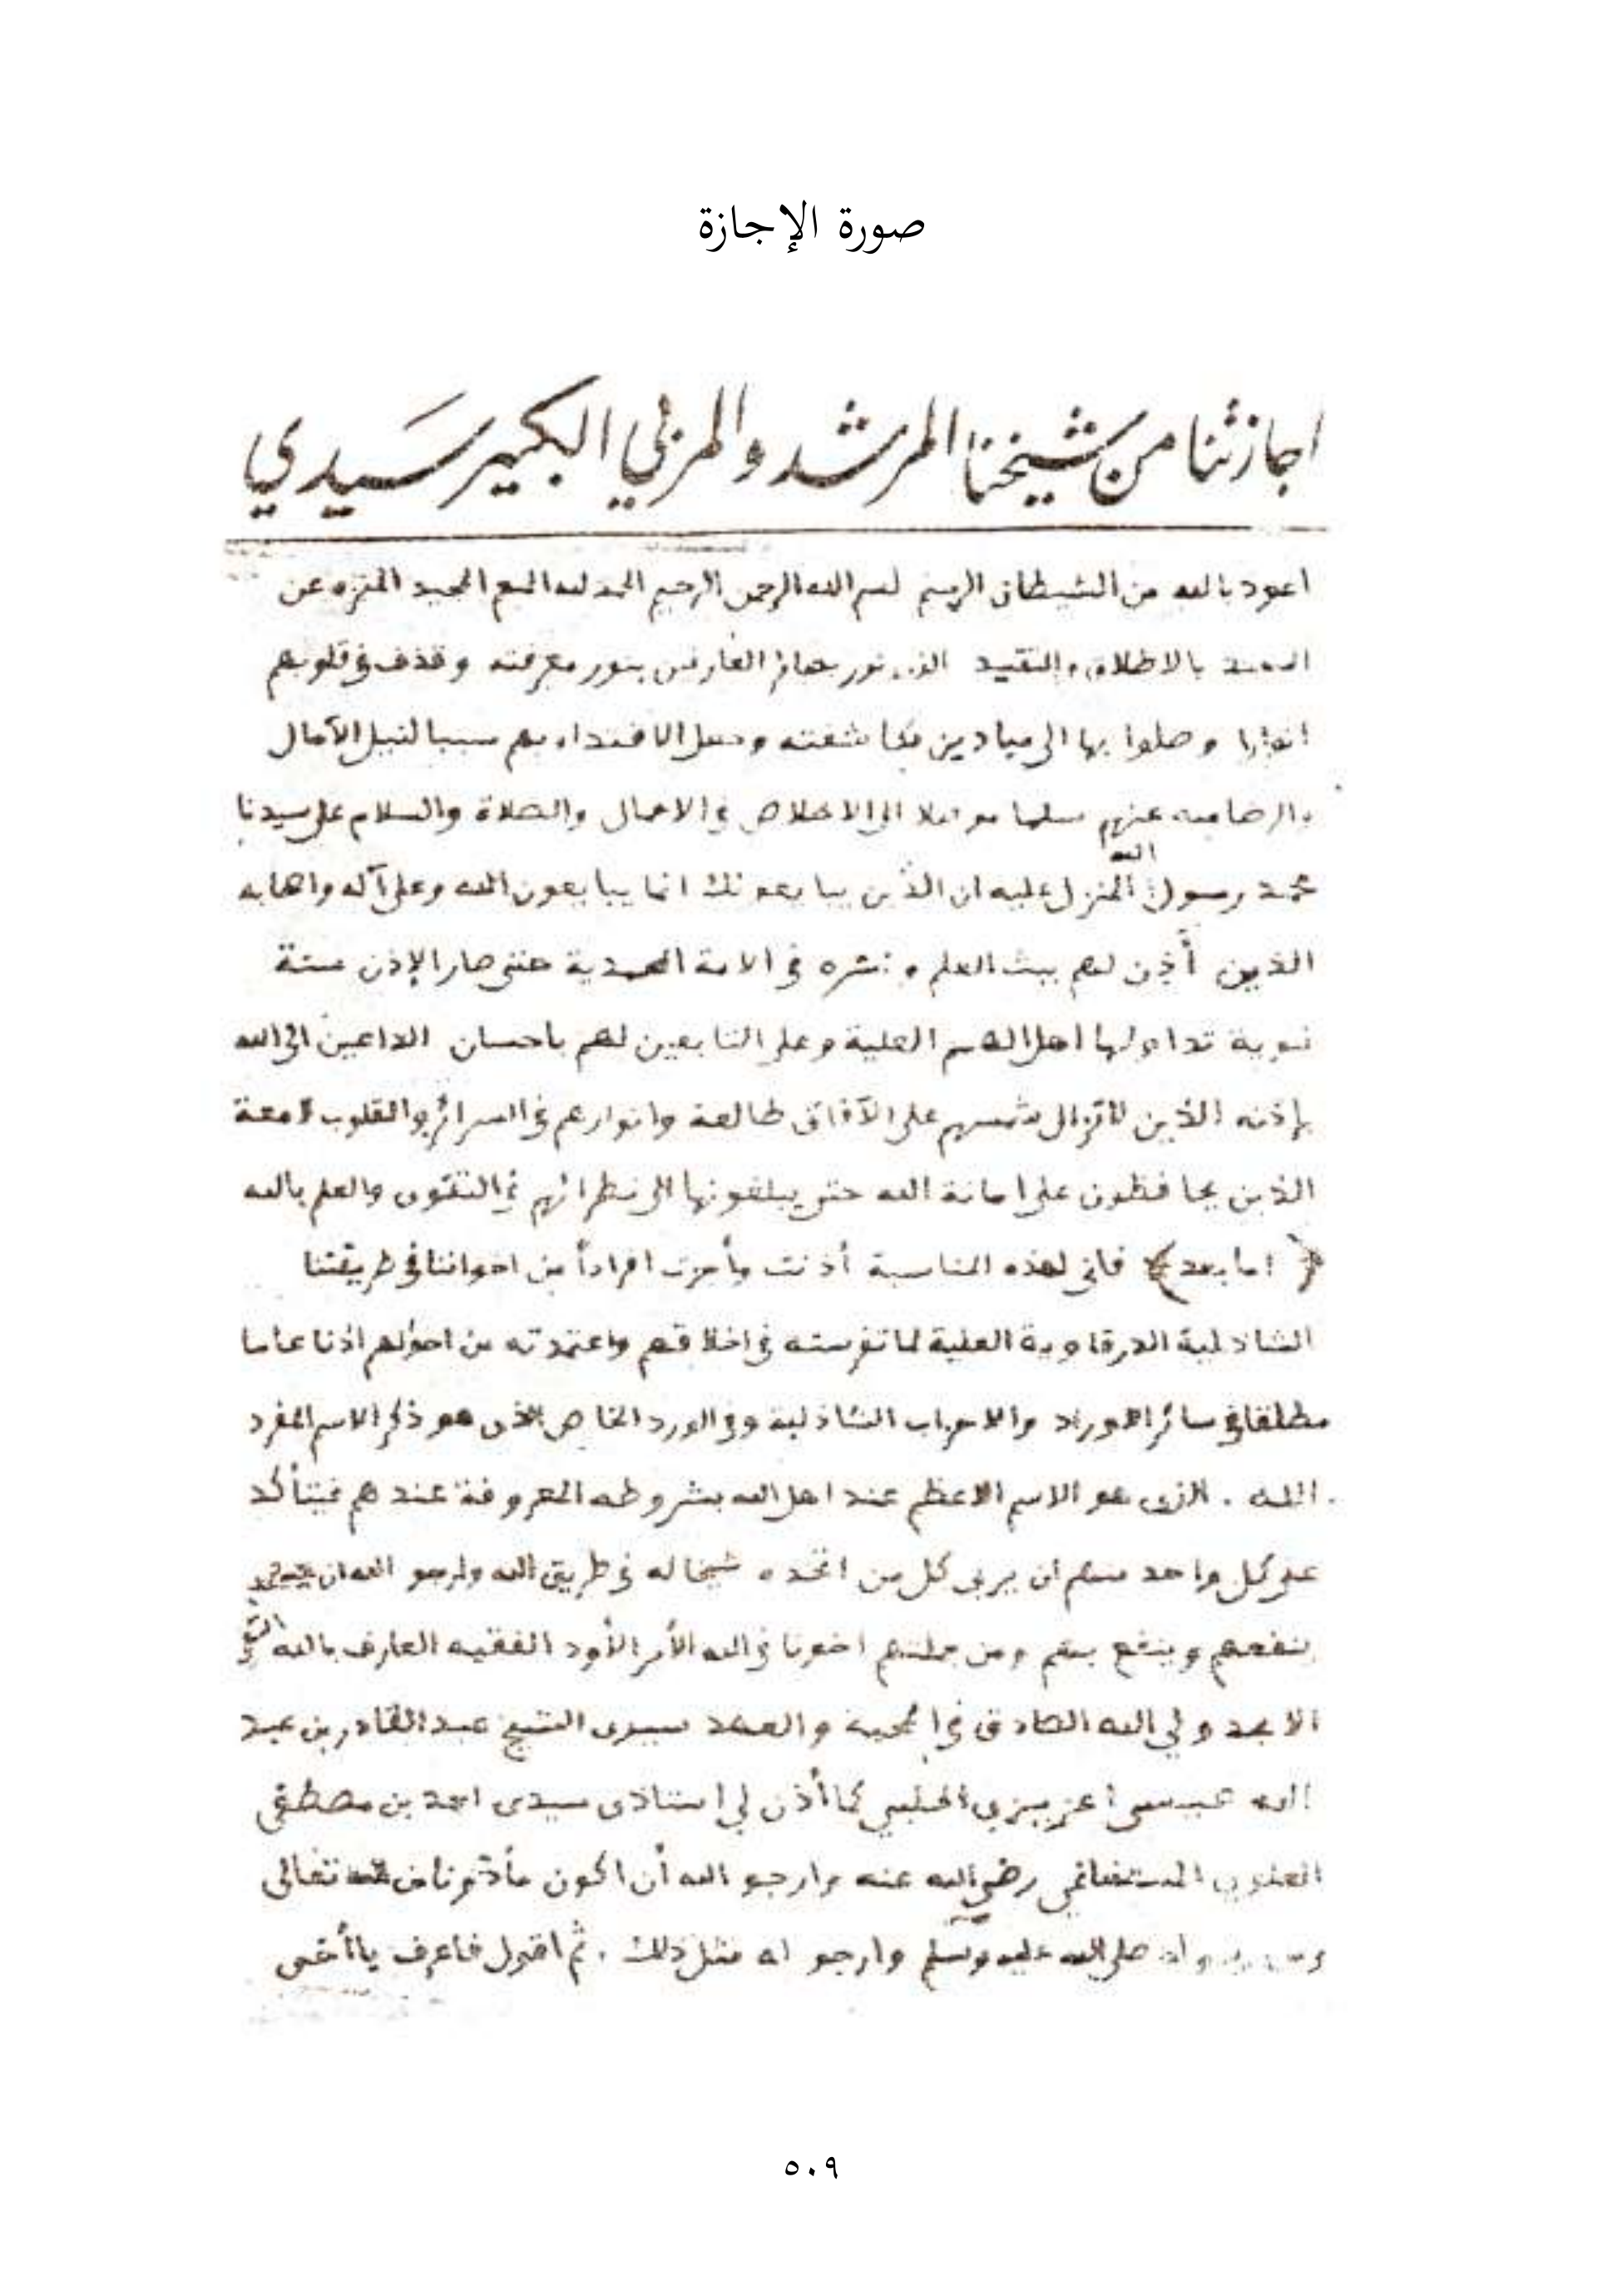 صورة الإجازة
اجازتنا من شيخنا المرشد والمربي الكبير سيدي
اعوذ بالله من الشيطان الرجيم بسم الله الرحمن الرحيم الحمد لله المجيد المنزه عن
بالاطلاق والتقييد الذي نور العارفين بنور معرفته وقذف في قلوبهم
انوارا وصلوا بها الى ميادين مكاشفته وجعل الاقتداء بهم سببا لنيل الآمال
والرضا منه عنهم سلما موصلا الى الاخلاص في الاعمال والصلاة والسلام على سيدنا
محمد رسول الله المنزل عليه ان الذين يبايعونك انما يبايعون الله وعلى آله واصحابه
الذين أذن لهم ببث العلم ونشره في الامة المحمدية حتى صار الإذن سنة
نبوية تداولها اهل الهمم العلية وعلى التابعين لهم باحسان الداعين الى الله
بإذنه الذين لا تزال شمسهم على الآفاق طالعة وانوارهم في السرائر والقلوب لامعة
الذين يحافظون على امانة الله حتى يبلغونها الى نظرائهم في التقوى والعلم بالله
﴿ اما بعد ﴾ فاني لهذه المناسبة أذنت وأجزت افراداً من اخواننا في طريقتنا
الشاذلية الدرقاوية العلية لما تفرسته في اخلاقهم واعتمدته من احوالهم اذنا عاما
مطلقا في سائر الاوراد والاحزاب الشاذلية وفي الورد الخاص الذي هو ذكر الاسم المفرد
. الله . الذي هو الاسم الاعظم عند اهل الله بشروطه المعروفة عندهم فيتأكد
على كل واحد منهم ان يربي كل من اتخذه شيخا له في طريق الله وارجو الله ان
ينفعهم وينفع بهم ومن جملتهم اخونا في الله الأبر الأود الفقيه العارف بالله التقي
الامجد ولي الله الصادق في المحبة والعهد سيدي الشيخ عبد القادر بن عبد
الله عيسى اعزيزي الحلبي كما أذن لي استاذي سيدي احمد بن مصطفى
العلوي المستغانمي رضي الله عنه وارجو الله أن اكون مأذونا من الله تعالى
ومن رسوله صلى الله عليه وسلم وارجو له مثل ذلك . ثم اقول فاعرف يا أخي
٥٠٩